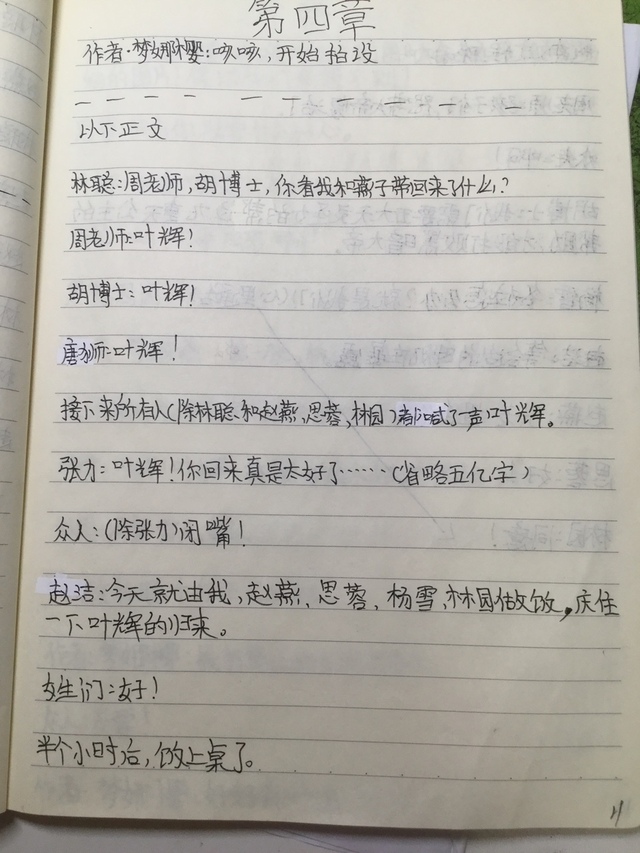 第四章
作者·梦娜·樱:咳咳,开始拍没
以下正文
林聪:周老师,胡博士,你看我和燕子带回来了什么?
周老师:叶辉!
胡博士:叶辉!
唐狮:叶辉!
接下来所有人(除林聪和赵燕,思蓉,林园)都喊了一声叶辉。
张力:叶辉!你回来真是太好了……(省略五亿字)
众人:(除张力)闭嘴!
赵洁:今天就由我,赵燕、思蓉,杨雪,林园做饭,庆住
一下叶辉的归来。
女生们:好!
半个小时后,饭上桌了。